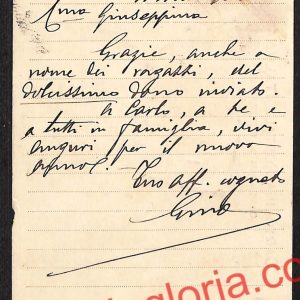 Cma Giuseppina
Grazie, anche a
nome dei ragazzi, del
dolcissimo dono inviato.
A Carlo, a te e
a tutti in famiglia, vivi
auguri per il nuovo
anno.
Tuo aff. cognato
Gino
gloria.co